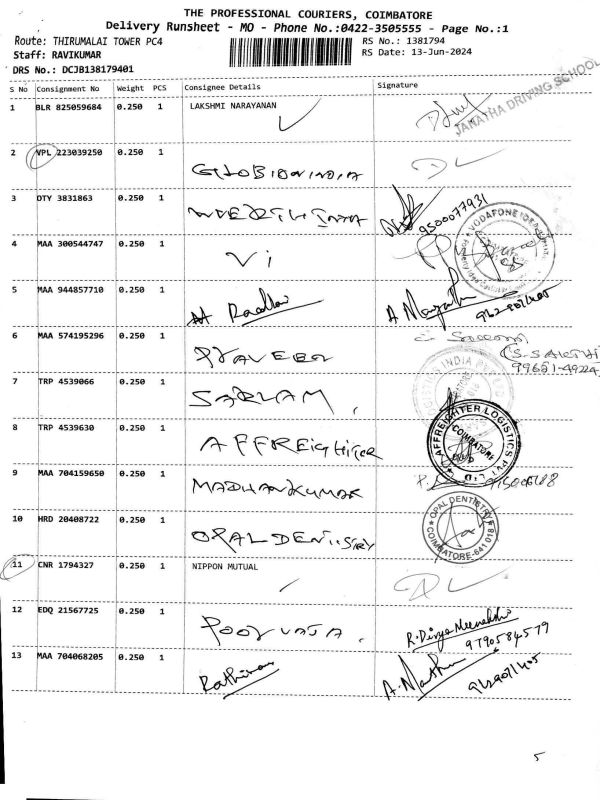 THE PROFESSIONAL COURIERS, COIMBATORE
Delivery Runsheet - MO - Phone No.:0422-3505555 - Page No.:1
Route: THIRUMALAI TOWER PC4
RS No.: 1381794
Staff: RAVIKUMAR
RS Date: 13-Jun-2024
DRS No.: DCJB138179401
S No Consignment No Weight PCS Consignee Details Signature
1 BLR 825059684 0.250 1 LAKSHMI NARAYANAN
JANATHA DRIVING SCHOOL
2 VPL 223039250 0.250 1
3 DTY 3831863 0.250 1 9500077931
4 MAA 300544747 0.250 1 Vi
VODAFONE IDEA
5 MAA 944857710 0.250 1
6 MAA 574195296 0.250 1 PRAVEEN
7 TRP 4539066 0.250 1
LOGISTICS INDIA
8 TRP 4539630 0.250 1 AFFREIGHTER
AFFREIGHTER LOGISTICS PVT LTD
COIMBATORE
9 MAA 704159650 0.250 1 MADHANKUMAR
10 HRD 20408722 0.250 1 OPAL DENTISTRY
OPAL DENTISTRY
COIMBATORE-641 018
11 CNR 1794327 0.250 1 NIPPON MUTUAL
12 EDQ 21567725 0.250 1 POORVAJA.
R. Divya Meenakshi
9790584579
13 MAA 704068205 0.250 1
5